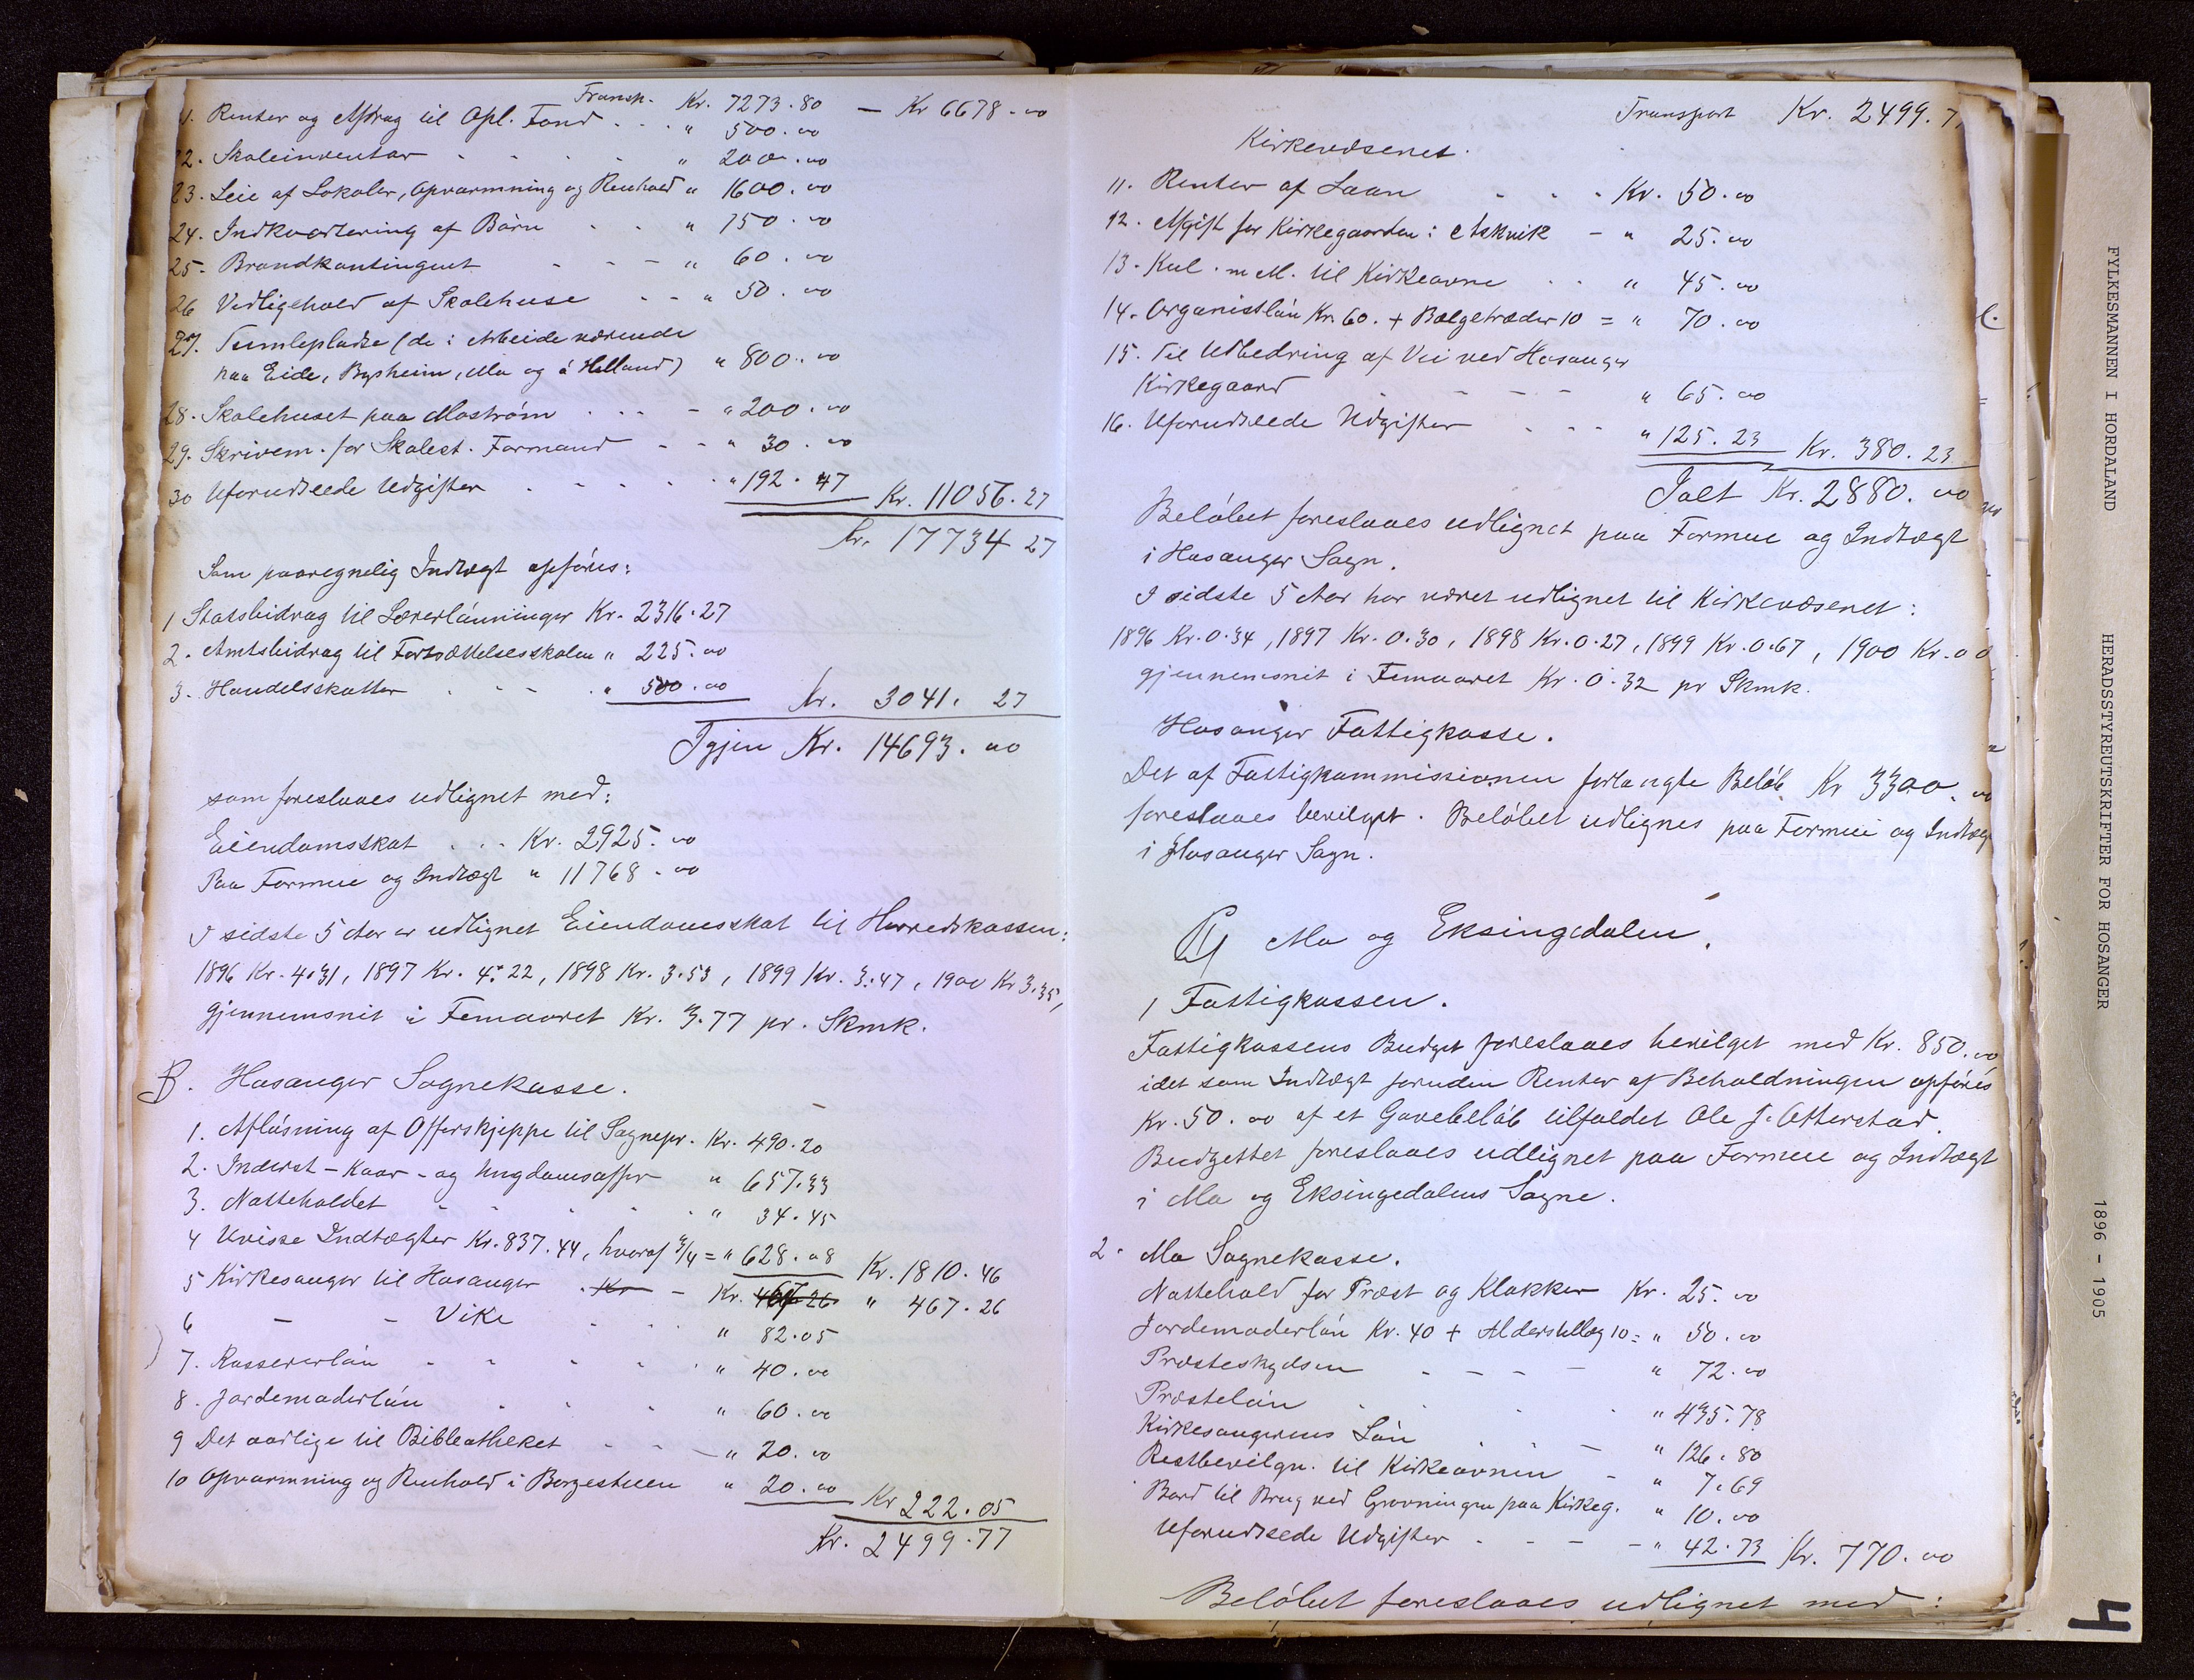 Transp. Kr. 7273.80 — Kr 6678.00
1. Renter og Afdrag til Opl. Fond . . . " 500.00
22. Skoleinventar . . . . " 200.00
23. Leie af Lokaler, Opvarmning og Renhold " 1600.00
24. Indkvartering af Börn . . " 150.00
25. Brandkontingent - - - " 60.00
26 Vedligehold af Skolehuse - - " 50.00
27. Tumlepladse (de i Arbeide værende
paa Eide, Bysheim, Mo og á Helland) " 800.00
28. Skolehuset paa Mostrøm . . . - " 200.00
29. Skrivem. for Skolest. Formand - - " 30.00
30 Uforudseede Udgifter . . . . . " 192.47 Kr. 11056.27
Kr. 17734 27
Som paaregnelig Indtægt opføres:
1 Statsbidrag til Lærerlønninger Kr. 2316.27
2. Amtsbidrag til Fortsættelsesskolen " 225.00
3. Handelsskatter . . - . " 500.00 Kr. 3041.27
Igjen Kr. 14693.00
som foreslaaes udlignet med:
Eiendomsskat . . . Kr. 2925.00
Paa Formue og Indtægt " 11768.00
I sidste 5 Aar er udlignet Eiendomsskat til Herredskassen:
1896 Kr. 4.31, 1897 Kr. 4.22, 1898 Kr. 3.53, 1899 Kr. 3.47, 1900 Kr 3.35,
gjennemsnit i Femaaret Kr. 3.77 pr. Skmk.
B. Hosanger Sognekasse.
1. Afløsning af Offerskjeppe til Sognepr. Kr. 490.20
2. Inderst-Kaar- og Ungdomsoffer " 657.33
3. Natteholdet - - . . " 34.45
4 Uvisse Indtægter Kr. 837.44, hvoraf 3/4 = " 628.08 Kr. 1810.46
5 Kirkesanger til Hosanger . Kr - Kr. 467.26 " 467.26
6 — - Vike . . . " 82.05
7. Kassererløn - - - . . " 40.00
8. Jordemoderløn . . . " 60.00
9 Det aarlige til Bibliotheket - - - " 20.00
10 Opvarmning og Renhold i Borgestuen " 20.00 Kr 222.05
Kr. 2499.77
Transport Kr. 2499.7
Kirkevæsenet.
11. Renter af Laan . . . Kr. 50.00
12. Afgift for Kirkegaarden i Askvik - " 25.00
13. Kul. m M. til Kirkeovne . . " 45.00
14. Organistløn Kr. 60. + Bælgetræder 10 = " 70.00
15. Til Udbedring af Vei ved Hosanger
Kirkegaard . - - - " 65.00
16. Uforudseede Udgifter . . . " 125.23 Kr. 380.23
Ialt Kr. 2880.00
Beløbet foreslaaes udlignet paa Formue og Indtægt
i Hosanger Sogn.
I sidste 5 Aar har været udlignet til Kirkevæsenet:
1896 Kr. 0.34, 1897 Kr. 0.30, 1898 Kr. 0.27, 1899 Kr. 0.67, 1900 Kr. 0 0
gjennemsnit i Femaaret Kr. 0.32 pr Skmk.
Hosanger Fattigkasse.
Det af Fattigkommissionen forlangte Beløb Kr 3300.00
foreslaaes bevilget. Beløbet udlignes paa Formue og Indtæg
i Hosanger Sogn.
Mo og Eksingedalen.
1 Fattigkassen.
Fattigkassens Budget foreslaaes bevilget med Kr. 850.00
idet som Indtægt foruden Renter af Beholdningen opføres
Kr. 50.00 af et Gavebeløb tilfaldet Ole J. Otterstad.
Budgettet foreslaaes udlignet paa Formue og Indtægt
i Mo og Eksingedalens Sogne.
2. Mo Sognekasse.
Nattehold for Præst og Klokker Kr. 25.00
Jordemoderløn Kr. 40 + Alderstillæg 10 = " 50.00
Præsteskydsen - - - - " 72.00
Præsteløn . . . " 435.78
Kirkesangerens Løn . . - " 126.80
Restbevilgn. til Kirkeovnen - " 7.69
Bord til Brug ved Gravningen paa Kirkeg. " 10.00
Uforudseede Udgifter . - - - " 42.73 Kr. 770.00
Beløbet foreslaaes udlignet med:
FYLKESMANNEN I HORDALAND HERADSTYREUTSKRIFTER FOR HOSANGER 1896 - 1905
4